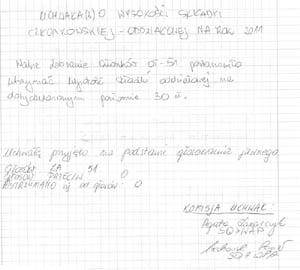 UCHWAŁA(R) O WYSOKOŚCI SKŁADKI
CZŁONKOWSKIEJ - ODDZIAŁOWEJ NA ROK 2011
Walne Zebranie Członków OT-51 postanowiło
utrzymać wysokość składki oddziałowej na
dotychczasowym poziomie 30 zł.
Uchwałę przyjęto na podstawie głosowania jawnego
Głosów ZA 51
Głosów PRZECIW 0
WSTRZYMANO się od głosów: 0
KOMISJA UCHWAŁ:
Agata